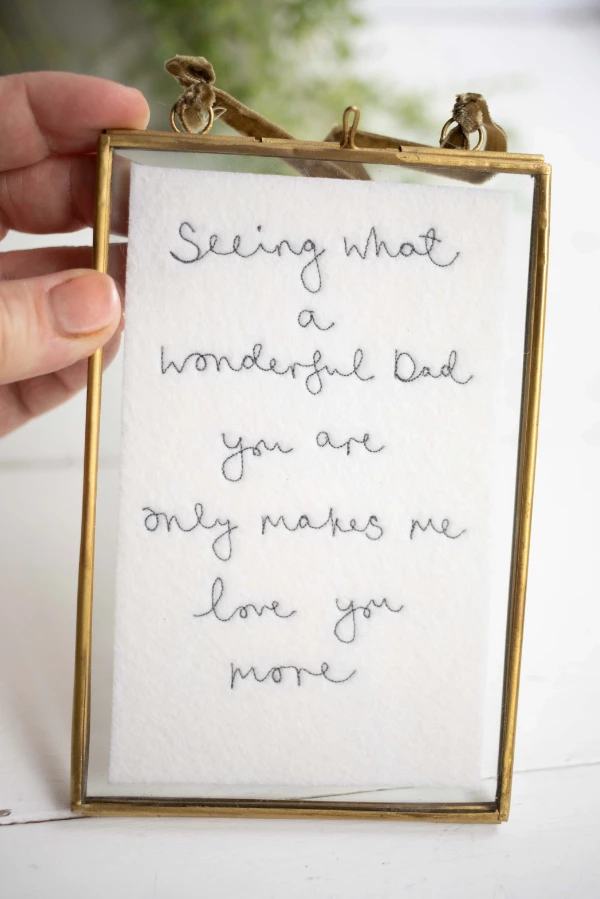 Seeing what
a
wonderful Dad
you are
only makes me
love you
more